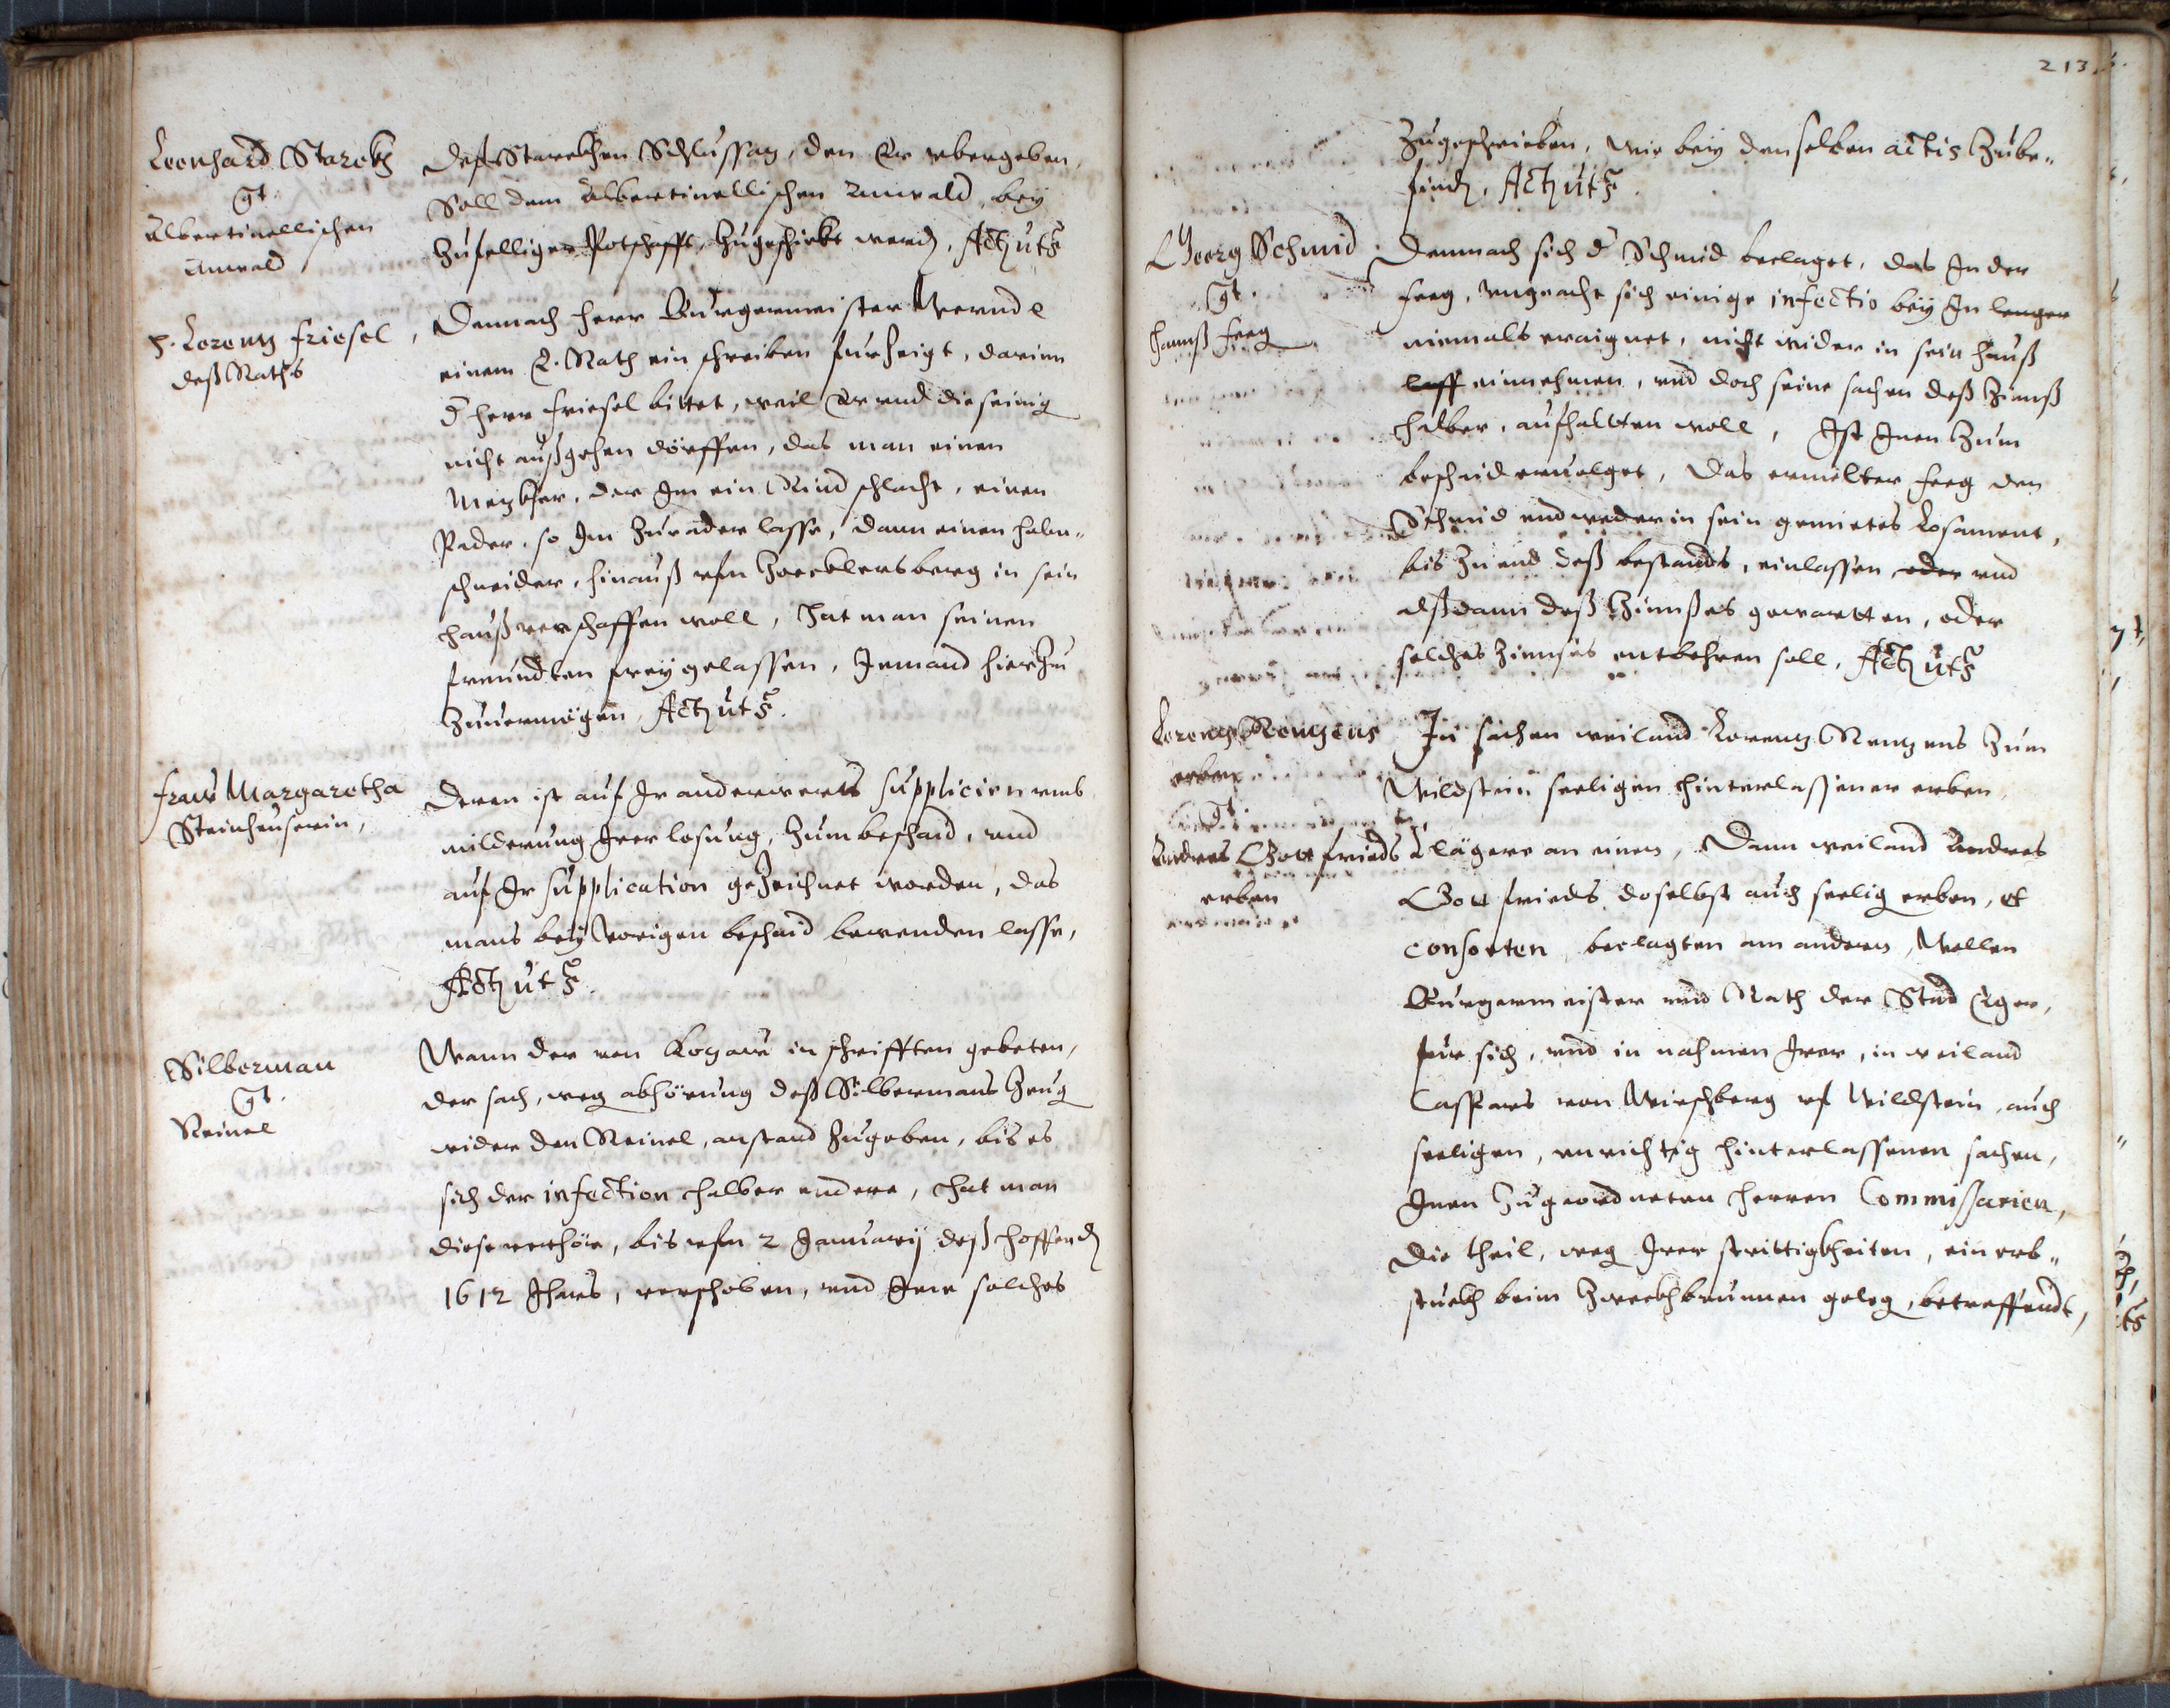 Leonhard Starckh
gt.
Albertinellischen
Anwald
Deß Starckhen Schlussag, den Er vbergeben,
Soll dem Albertinellischen Anwald, bey
zufelliger Potschafft, zugeschickt werd, Acth ut s
H. Lorentz Friesel
deß Raths
Demnach herr Burgermeister Wernd l
einem E. Rath ein schreiben furzeigt, darinn
d herr Friesel bittet, weil Er vnd die seinig
nicht außgehen dörffen, das man einen
Metzkher, der Im ein Rind schlacht, einen
Pader, so Im zur ader lasse, dann einen habn-
schneider, hinauß vfm Zoecklersberg in sein
hauß verschaffen woll, Hat man seinen
freundten frey gelassen, Jemand hierzu
zuuermögen, Acth ut s.
Fraw Margaretha
Steinheuserin,
Deren ist auf Ir anderwerts supplicirn vmb
milderung Irer losung, zum beschaid, vnd
auf Ir supplication gezeichnet worden, das
mans bey vorigen beschaid bewenden lasse,
Acth ut s.
Silberman
gt.
Reinel
Wann der von Kozaw in schrifften gebeten,
der sach, weg abhörung deß Silbermans Zeug
wider den Reinel, anstand zugeben, bis es
sich der infection halber endere, Hat man
diese verhör, bis vfm 2 Januarij deß hoffend
1612 Jhars, verschoben, vnd Ime solches
213.
zugeschrieben, wie bey denselben actis zube-
find, Acth ut s.
Georg Schmid
gt.
Hannß Feeg
Demnach sich d Schmid beclaget, das In der
Feeg, vngeacht sich einige infectio bey In lenger
niemals eraignet, nicht wider in sein hauß
lass einnehmen, vnd doch seine sachen deß Zinnß
halber, aufhaltten woll, Ist Inen zum
beschaid ervolget, Das ermelter Feeg den
Schmid endweder in sein gemietes Losament,
bis zu end deß bestands, einlassen, oder vnd
alßdann deß Zinnßes gewartten, oder
solches Zinnses entbehren soll, Acth ut s
Lorentz Rentzens
erben
gt.
Andres Gottfrieds
erben
In sachen weiland Lorentz Rentzens zum
Wildstein seeligen hinterlassener erben,
Clägere an einem, Dann weiland Andres
Gottfrieds doselbst auch seelig erben, et
consorten, beclagten am andern, Wollen
Burgermeister vnd Rath der Stad Eger,
fur sich, vnd in nahmen Irer, in weiland
Casspars von Wirschberg vf Wildstein, auch
seeligen, vnrichtig hinterlassenen sachen,
Inen zugeordneten herren Commissarien,
die theil, weg Irer strittigkheiten, ein erb-
stuckh beim Zweckhbrunnen geleg, betreffendt,